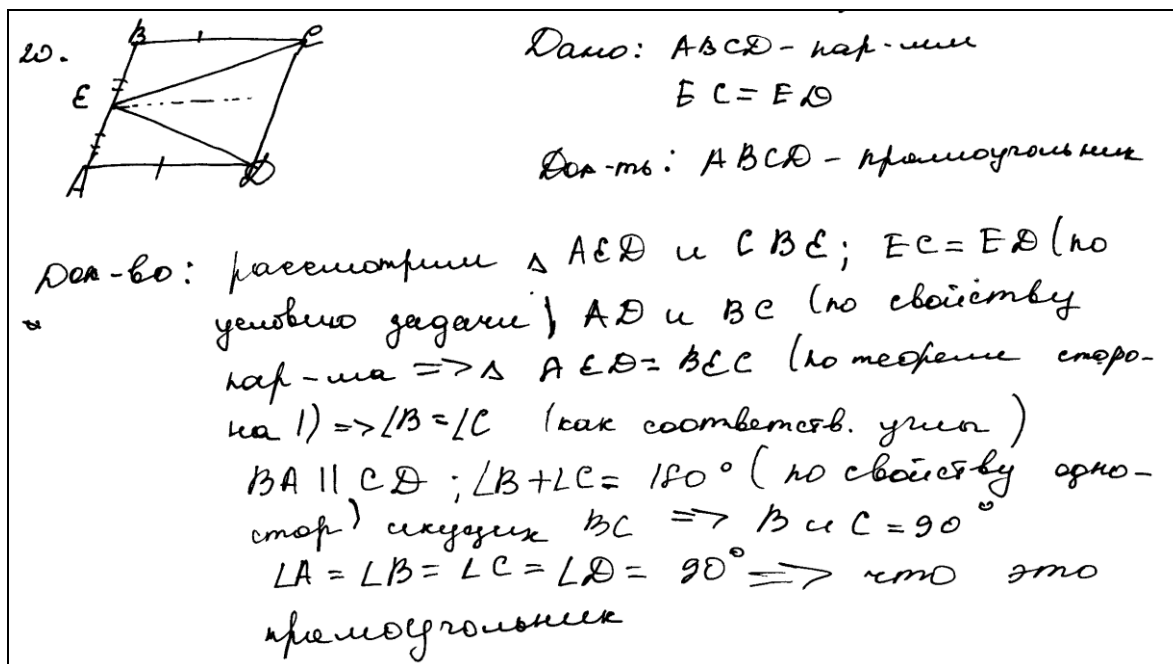 20.
B C
E
A D
Дано: ABCD - пар-мм
EC = ED
Док-ть: ABCD - прямоугольник
Док-во: рассмотрим △ AED и CBE; EC = ED (по
условию задачи) AD и BC (по свойству
пар-ма => △ AED = BEC (по теореме сторо-
на 1) => ∠B = ∠C (как соответств. углы)
BA || CD ; ∠B + ∠C = 180° (по свойству одно-
стор) секущих BC => B и C = 90°
∠A = ∠B = ∠C = ∠D = 90° => что это
прямоугольник